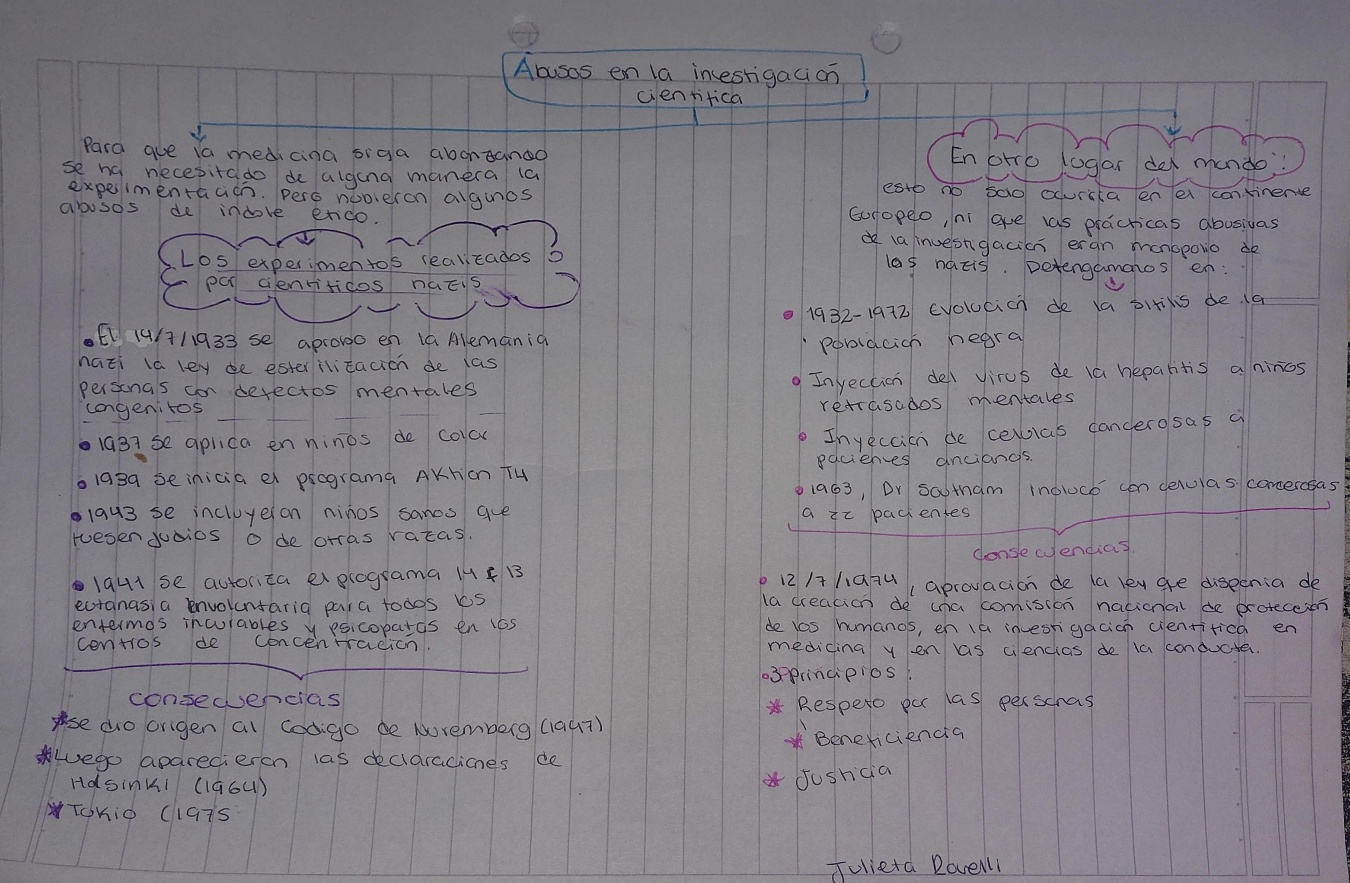 Abusos en la investigación
cientifica
Para que la medicina siga abanzando
se ha necesitado de alguna manera la
experimentación. Pero hubieron algunos
abusos de indole etico.
Los experimentos realizados
por cientificos nazis
El 14/7/1933 se aprobo en la Alemania
nazi la ley de esterilización de las
personas con defectos mentales
congenitos
1937 se aplica en niños de color
1939 se inicia el programa Aktion T4
1943 se incluyeron niños sanos que
fuesen judios o de otras razas.
1941 se autoriza el programa 14 f 13
eutanasia involuntaria para todos los
enfermos incurables y psicopatas en los
centros de concentración.
consecuencias
*se dio origen al codigo de Nuremberg (1947)
*Luego aparecieron las declaraciones de
Halsinki (1964)
*Tokio (1975
En otro lugar del mundo:
esto no solo ocurria en el continente
Europeo, ni que las prácticas abusivas
de la investigación eran monopolio de
los nazis. Detengamonos en:
1932-1972 Evolución de la sifilis de la
población negra
Inyección del virus de la hepatitis a niños
retrasados mentales
Inyección de celulas cancerosas a
pacientes ancianos.
1963, Dr Soutnam inoluco con celulas cancerosas
a 22 pacientes
consecuencias.
12/7/1974, aprovación de la ley que disponia de
la creación de una comisión nacional de protección
de los humanos, en la investigación cientifica en
medicina y en las ciencias de la conducta.
3 Principios:
* Respeto por las personas
* Beneficiencia
* Justicia
Julieta Rovelli